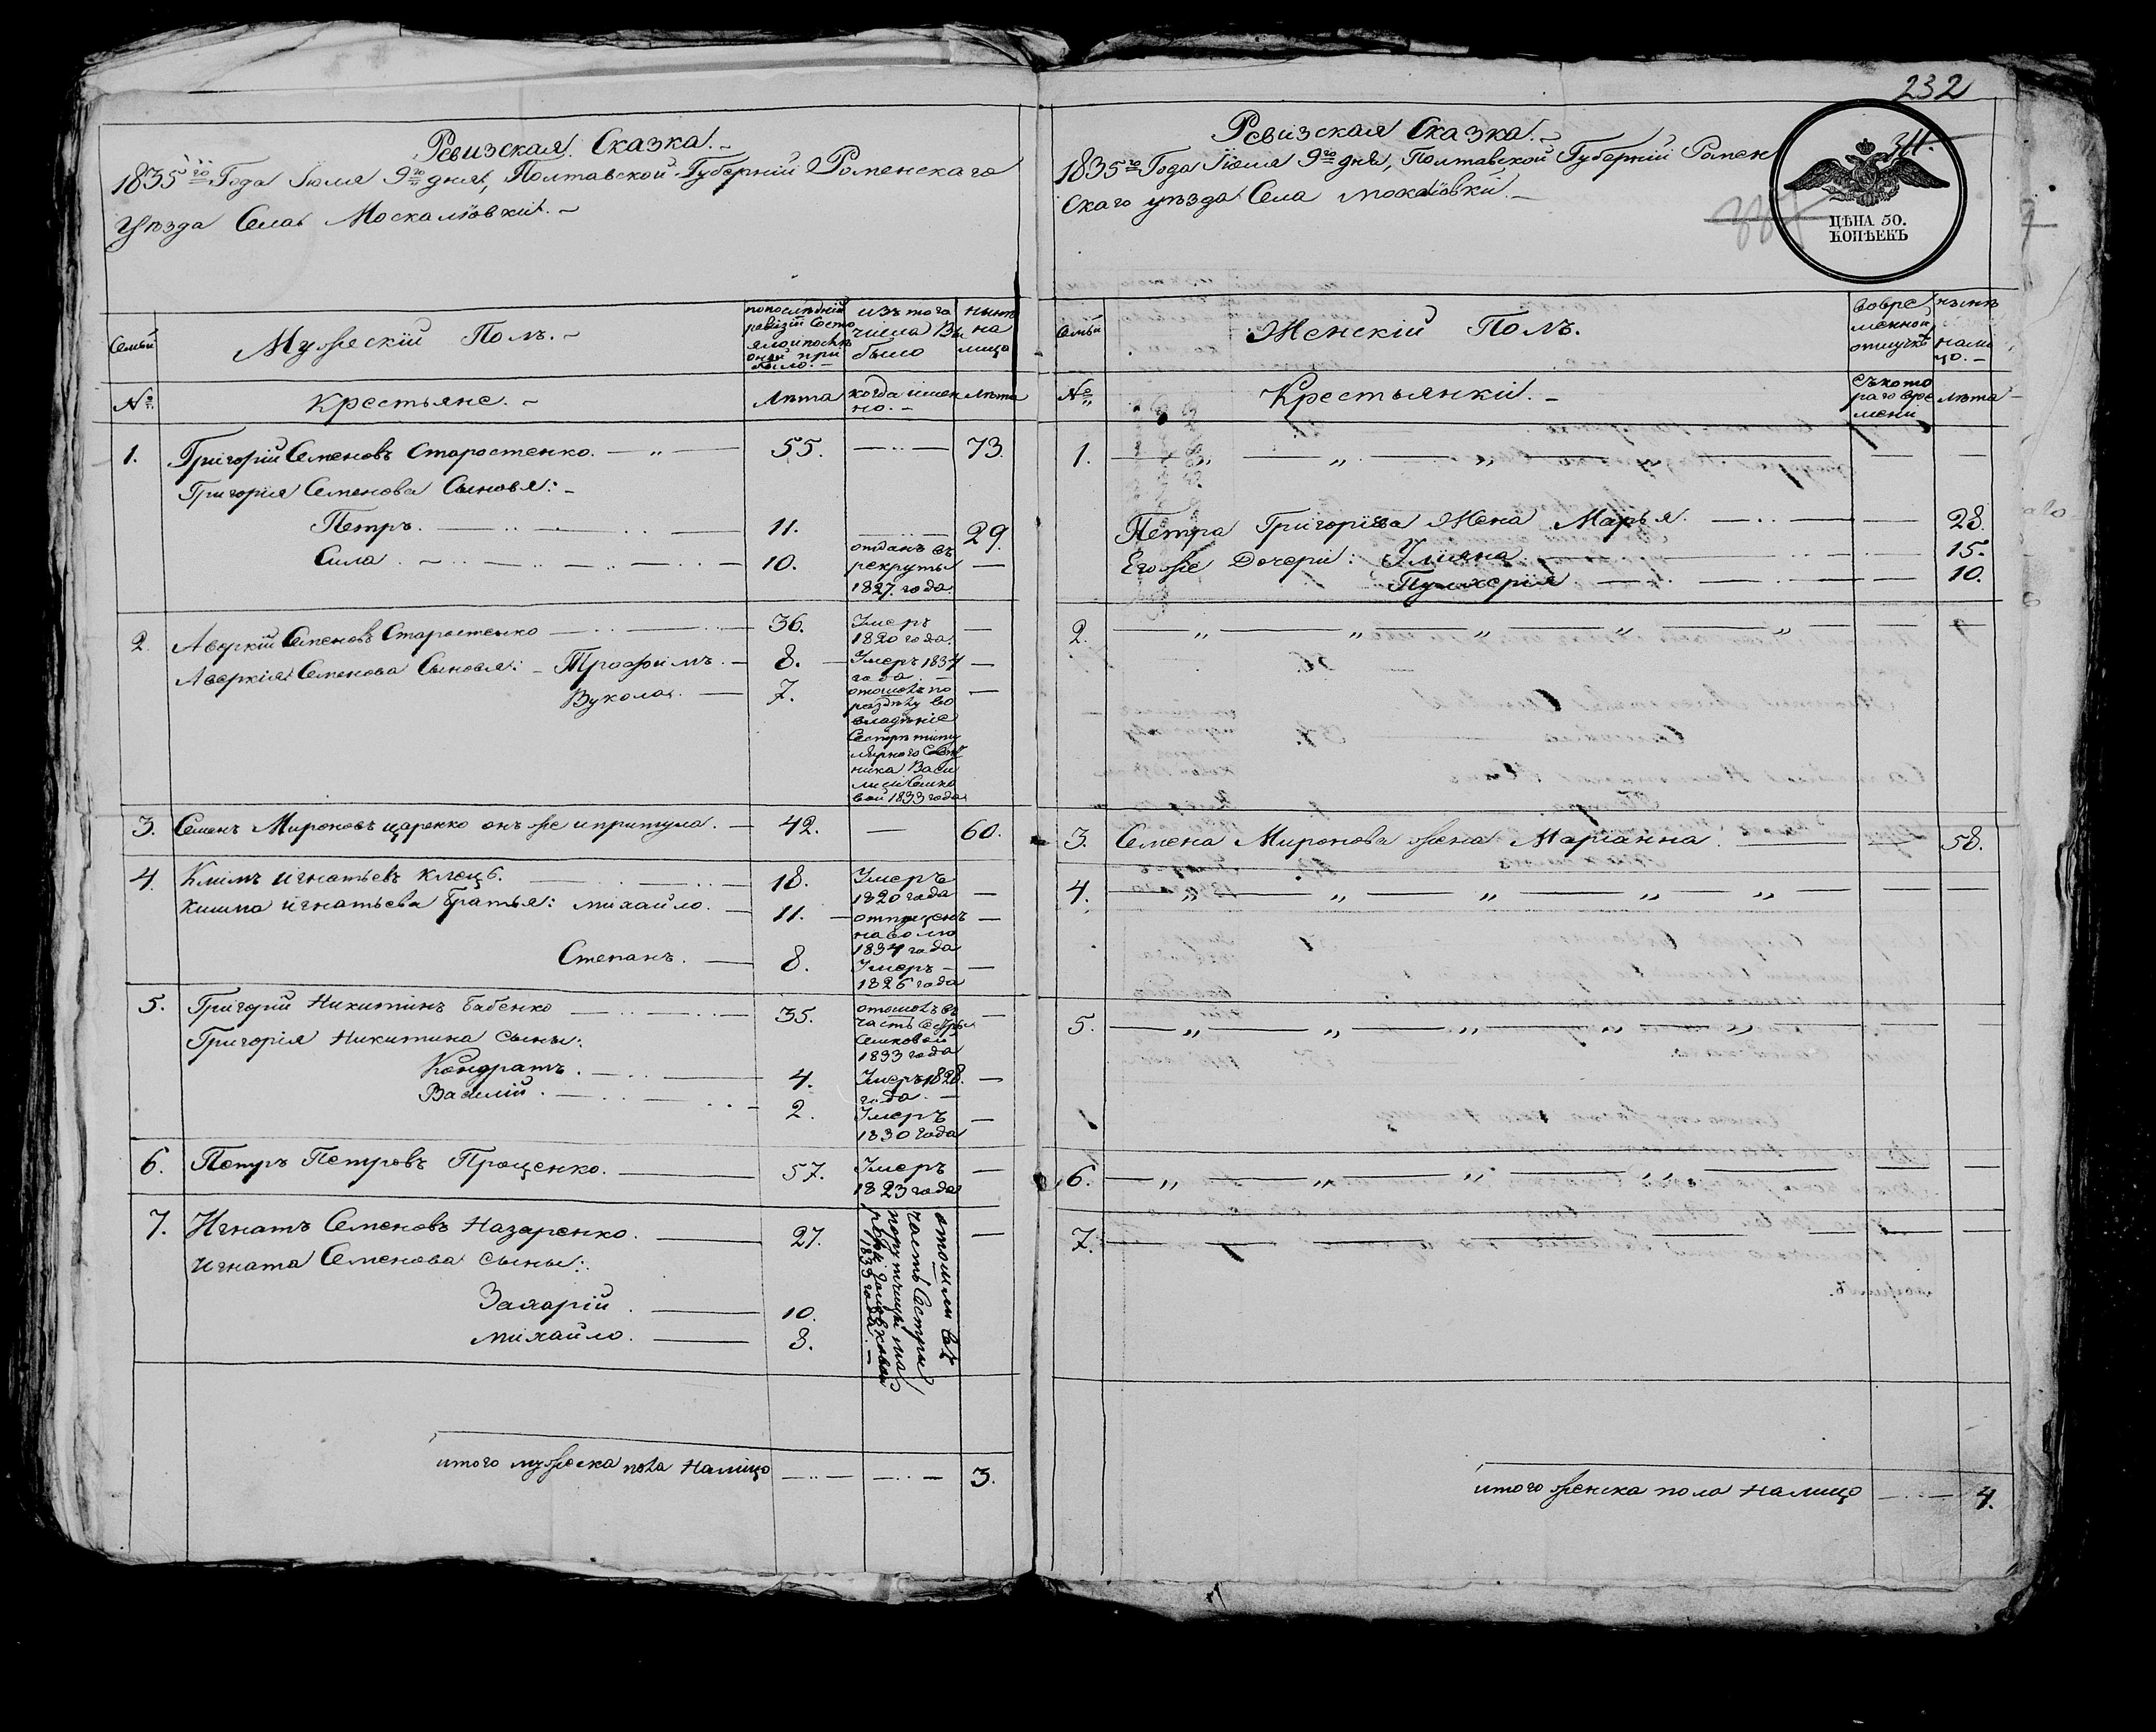 Ревизская Сказка.
1835го Года Іюля 9го дня, Полтавской Губерніи Роменскаго
Уѣзда Села Москалювки.
Семьи
Мужескій Полъ.
по последней
ревизіи состо
яло и послѣ
оной при
было.
изъ того
числа Вы
было
нынѣ
на
лицо
№
Крестьяне.
Лѣта
когда имен
но.
Лѣта
1. Григорій Семеновъ Старостенко. 55. 73.
Григорія Семенова Сыновья:
Петръ. 11. 29.
Сила. 10. отданъ въ
рекруты
1827. года.
2. Аверкій Семеновъ Старостенко 36. Умеръ
1820 года.
Аверкія Семенова Сыновья: Трофимъ. 8. Умеръ 1834
года.
Вукола. 7. отошолъ по
раздѣлу во
владѣніе
Сестры титу
лярного Совѣт
ника Васи
вой 1833 года
3. Семенъ Мироновъ царенко онъ же и притула. 42. 60.
4. Климъ Игнатьевъ Клецъ. 18. Умеръ
1820 года
Клима Игнатьева Братья: Михайло. 11. отпущенъ
на волю
1834 года
Степанъ. 8. Умеръ
1826 года
5. Григорій Никитинъ Бабенко 35. отошолъ въ
часть Сестры
Сешковой
1833 года
Григорія Никитина Сыны:
Кондратъ. 4. Умеръ 1828.
года.
Василій. 2. Умеръ
1830 года
6. Петръ Петровъ Проценко. 57. Умеръ
1823 года
7. Игнатъ Семеновъ Назаренко. 27.
Игната Семенова Сыны:
Захарій. 10.
Михайло. 8.
отошли въ
часть Сестры
порутчицы Ма
1833 года.
итого мужеска пола Налицо 3.
232
Ревизская Сказка.
1835го Года Іюля 9го дня, Полтавской Губерніи Ромен
скаго уѣзда Села Москалювки.
311.
ЦѢНА 50.
КОПѢЕКЪ
Семьи
Женскій Полъ.
во вре
менной
отлучкѣ
нынѣ
нали
цо.
№
Крестьянки.
съ кото
раго вре
мени
Лѣта
1.
Петра Григоріева Жена Марья. 28.
Его же Дочери: Уліяна 15.
Пульхерія 10.
2.
3. Семена Миронова жена Маріанна. 58.
4.
5.
6.
7.
итого женска пола Налицо 4.